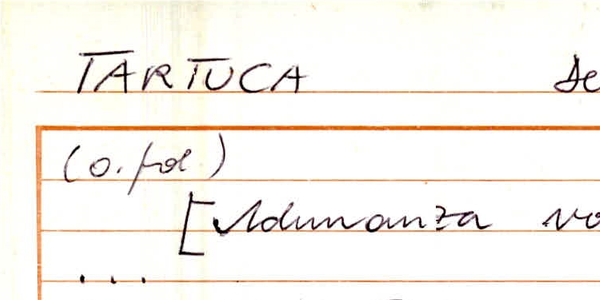 TARTUCA De
(o. fol)
[Adunanza vo
...